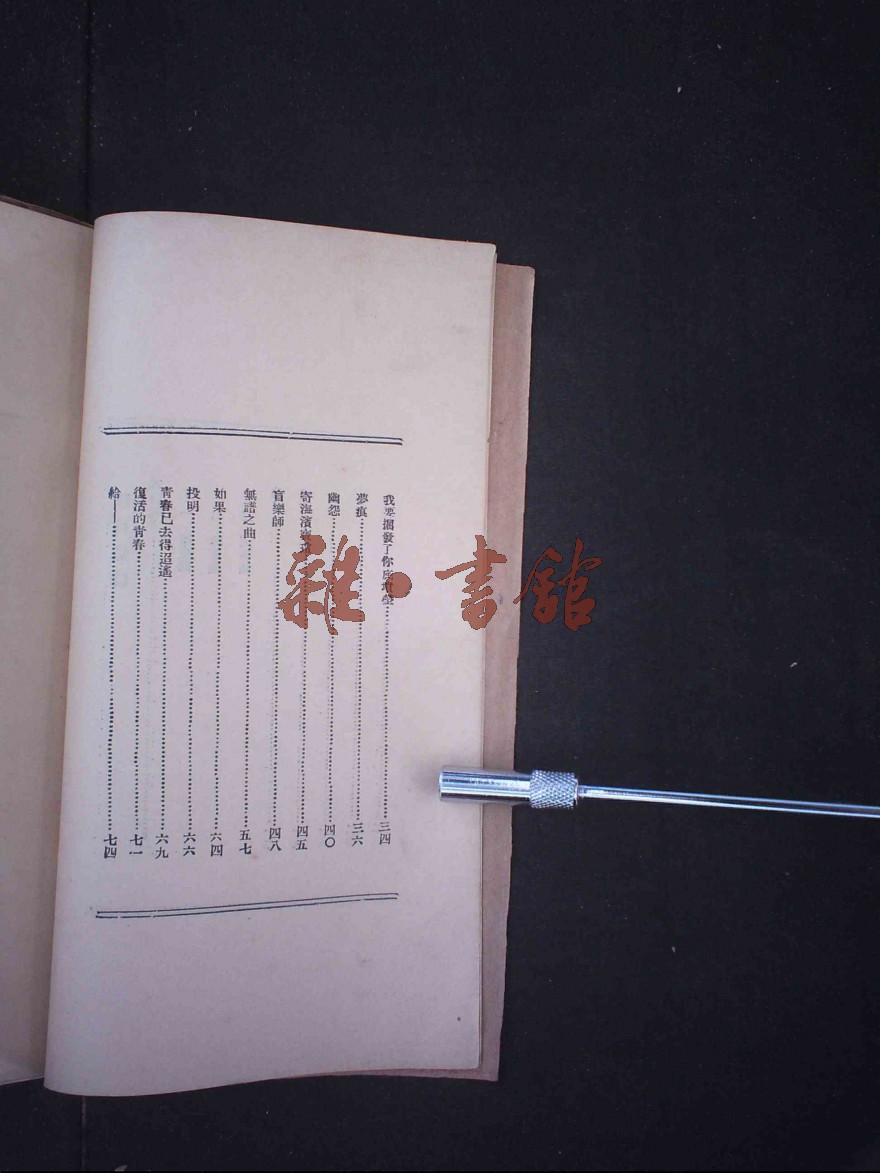 我要擱發了你 三四
夢痕 三六
幽怨 四〇
寄海濱 四五
盲樂師 四八
無譜之曲 五七
如果 六四
投明 六六
青春已去得迢遙 六九
復活的青春 七一
給—— 七四
雜·書館